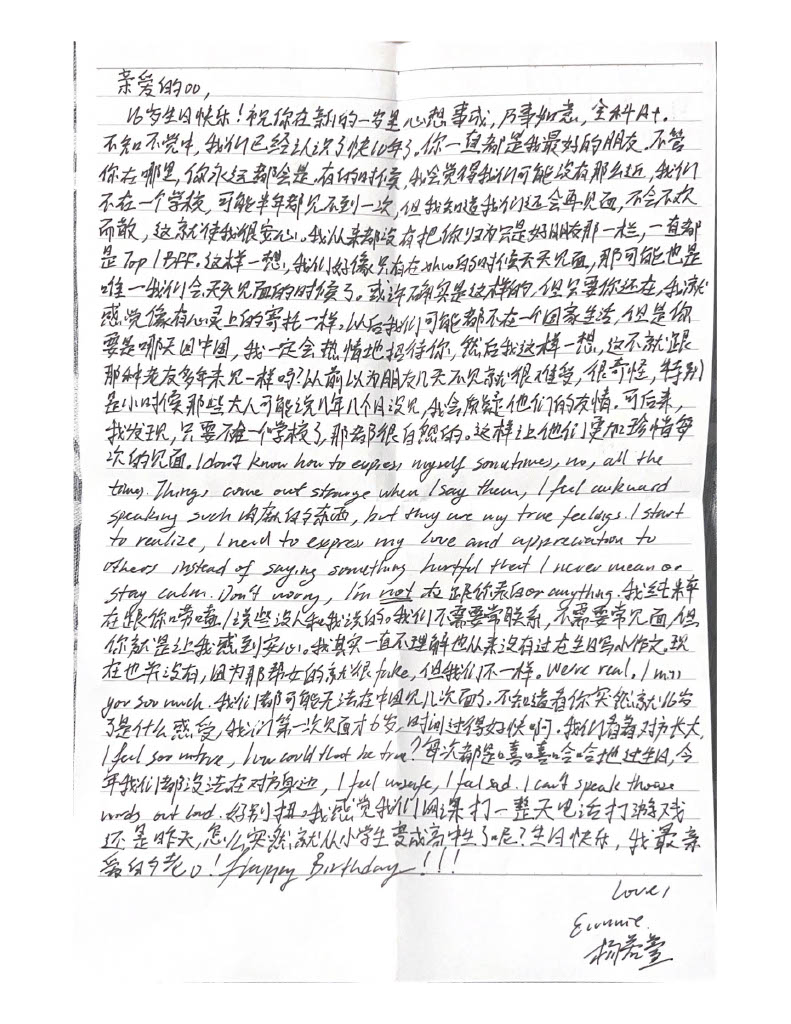 亲爱的OO，
16岁生日快乐！祝你在新的一岁里心想事成，万事如意，全科A+。
不知不觉中，我们已经认识了快10年了。你一直都是我最好的朋友。不管
你在哪里，你永远都会是。有的时候，我会觉得我们可能没有那么近，我们
不在一个学校，可能半年都见不到一次，但我知道我们还会再见面，不会不欢
而散，这就使我很安心。我从来都没有把你归为只是好朋友那一栏，一直都
是Top 1 BFF。这样一想，我们好像只有在 的时候天天见面，那可能也是
唯一我们会天天见面的时候了。或许确实是这样的，但只要你还在，我就
感觉像有心灵上的寄托一样。以后我们可能都不在一个国家生活，但是你
要是哪天回中国，我一定会热情地招待你，然后我这样一想，这不就跟
那种老友多年未见一样吗？以前以为朋友几天不见就很难受，很奇怪，特别
是小时候那些大人可能说几年几个月没见，我会质疑他们的友情。可后来，
我发现，只要不在一个学校了，那都很自然的。这样让他们更加珍惜每
次的见面。I don't know how to express myself sometimes, no, all the
times. Things come out strange when I say them, I feel awkward
speaking such 肉麻的东西, but they are my true feelings. I start
to realize, I need to express my love and appreciation to
others instead of saying something hurtful that I never mean or
stay calm. Don't worry, I'm not 在跟你表白or anything. 我纯粹
在跟你唠嗑，说些没人和我说的。我们不需要常联系，不需要常见面，但
你就是让我感到安心。我其实一直不理解也从来没有过在生日写小作文。现
在也并没有，因为那帮女的就很fake，但我们不一样。We're real. I miss
you soo much. 我们都可能无法在中国见几次面了。不知道看你突然就16岁
了是什么感受，我们第一次见面才6岁，时间过得好快啊。我们看着对方长大，
I feel soo mature, how could that be true? 每次都是嘻嘻哈哈地过生日，今
年我们都没法在对方身边，I feel unsafe, I feel sad. I can't speak those
words out loud. 好别扭。我感觉我们网课打一整天电话打游戏
还是昨天，怎么突然就从小学生变成高中生了呢？生日快乐，我最亲
爱的老O！Happy Birthday!!!
Love,
Eunnie.
杨